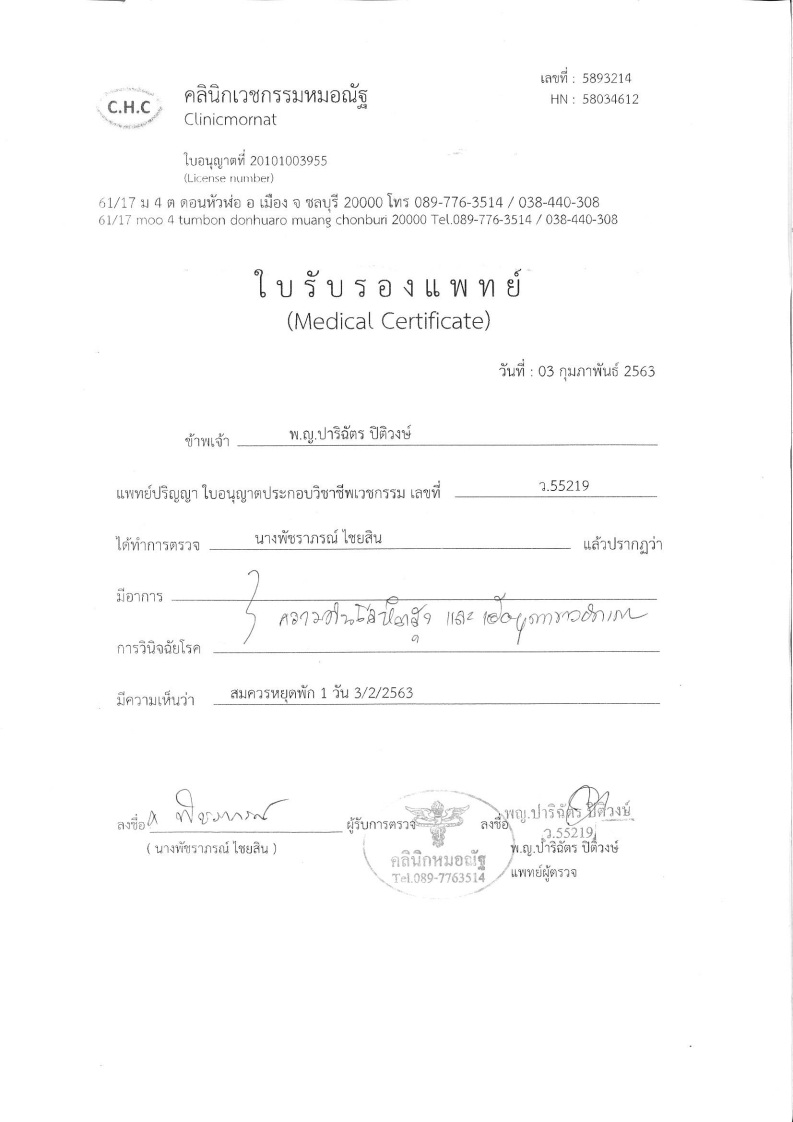 C.H.C
คลินิกเวชกรรมหมอณัฐ
Clinicmornat
เลขที่ : 5893214
HN : 58034612
ใบอนุญาตที่ 20101003955
(License number)
61/17 ม 4 ต ดอนหัวฬ่อ อ เมือง จ ชลบุรี 20000 โทร 089-776-3514 / 038-440-308
61/17 moo 4 tumbon donhuaro muang chonburi 20000 Tel.089-776-3514 / 038-440-308
ใบรับรองแพทย์
(Medical Certificate)
วันที่ : 03 กุมภาพันธ์ 2563
ข้าพเจ้า พ.ญ.ปาริฉัตร ปิติวงษ์
แพทย์ปริญญา ใบอนุญาตประกอบวิชาชีพเวชกรรม เลขที่ ว.55219
ได้ทำการตรวจ นางพัชราภรณ์ ไชยสิน แล้วปรากฏว่า
มีอาการ
ความดันโลหิตสูง และ
การวินิจฉัยโรค
มีความเห็นว่า สมควรหยุดพัก 1 วัน 3/2/2563
ลงชื่อ พัชราภรณ์ ผู้รับการตรวจ
( นางพัชราภรณ์ ไชยสิน )
คลินิกหมอณัฐ
Tel.089-7763514
ลงชื่อ พญ.ปาริฉัตร ปิติวงษ์
ว.55219
พ.ญ.ปาริฉัตร ปิติวงษ์
แพทย์ผู้ตรวจ